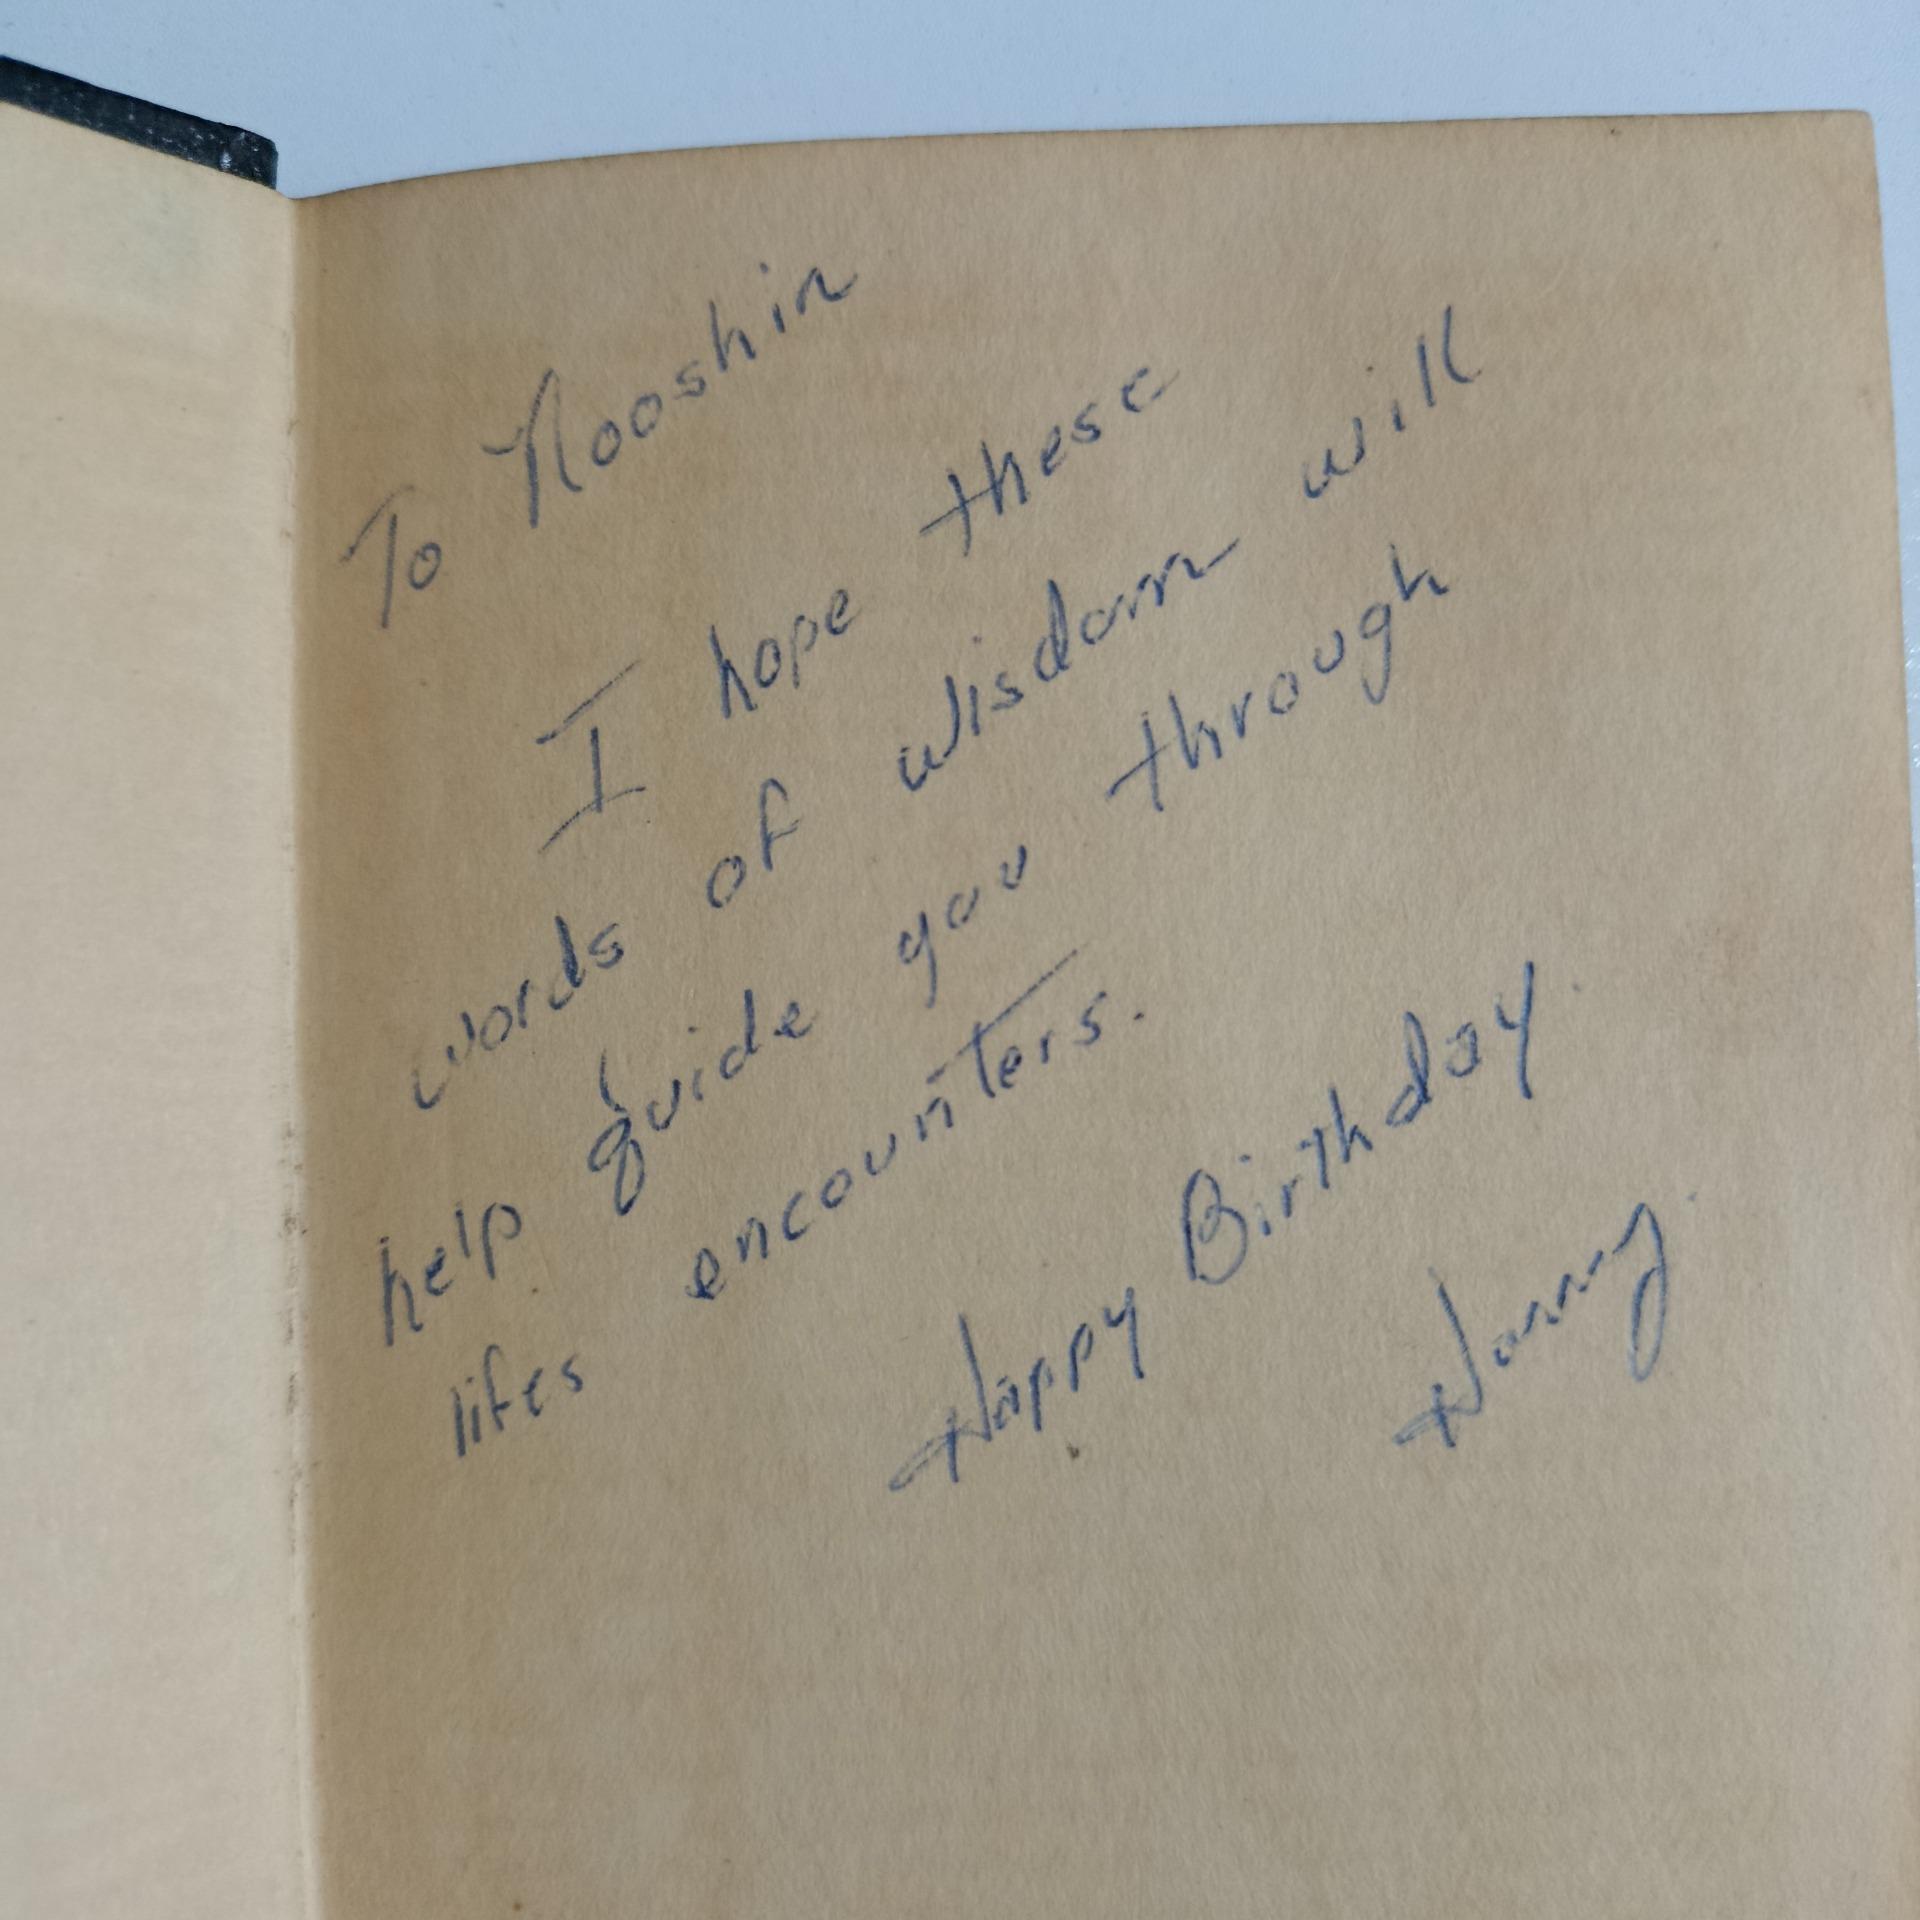 To Nooshin
I hope these
words of wisdom will
help guide you through
lifes encounters.
Happy Birthday.